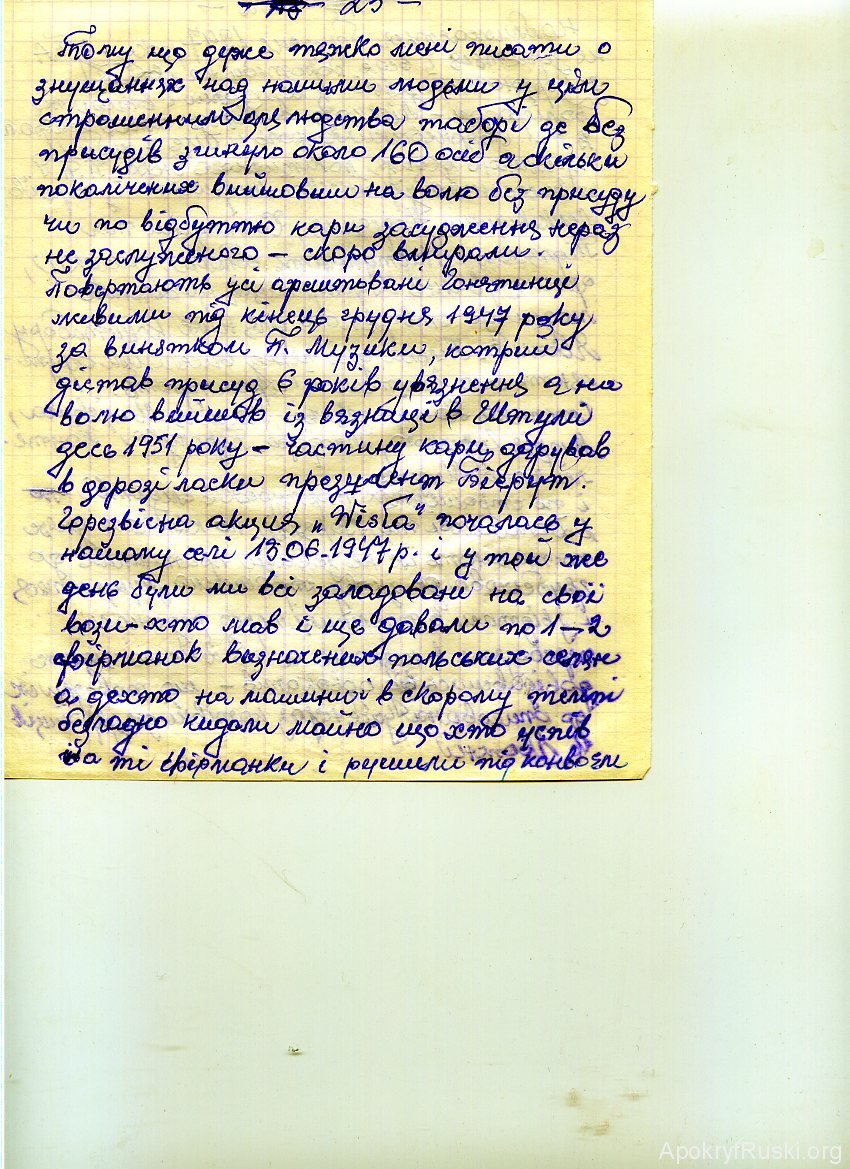 – 25 –
Тому що дуже тяжко мені писати о
знущаннях над нашими людьми у цім
страшенним для людства таборі де без
присудів згинуло около 160 осіб а скільки
покалічених вийшовши на волю без присуду
чи по відбуттю кари засудження нераз
не заслуженого – скоро вмирали.
Повертають усі арештовані Гонятинці
живими під кінець грудня 1947 року
за винятком П. Музики, котрий
дістав присуд 6 років увязнення а на
волю вийшов із вязниці в Штумі
десь 1951 року – частину кари дарував
в дорозі ласки президент Бєрут.
Горезвісна акция „Wisła" почалась у
нашому селі 15.06.1947 р. і у той же
день були ми всі заладовані на свої
вози – хто мав і ще давали по 1–2
фірманок визначених польських селян
а дехто на машини і в скорому темпі
безладно кидали майно що хто успів
на ті фірманки і рушили під конвоєм
ApokryfRuski.org